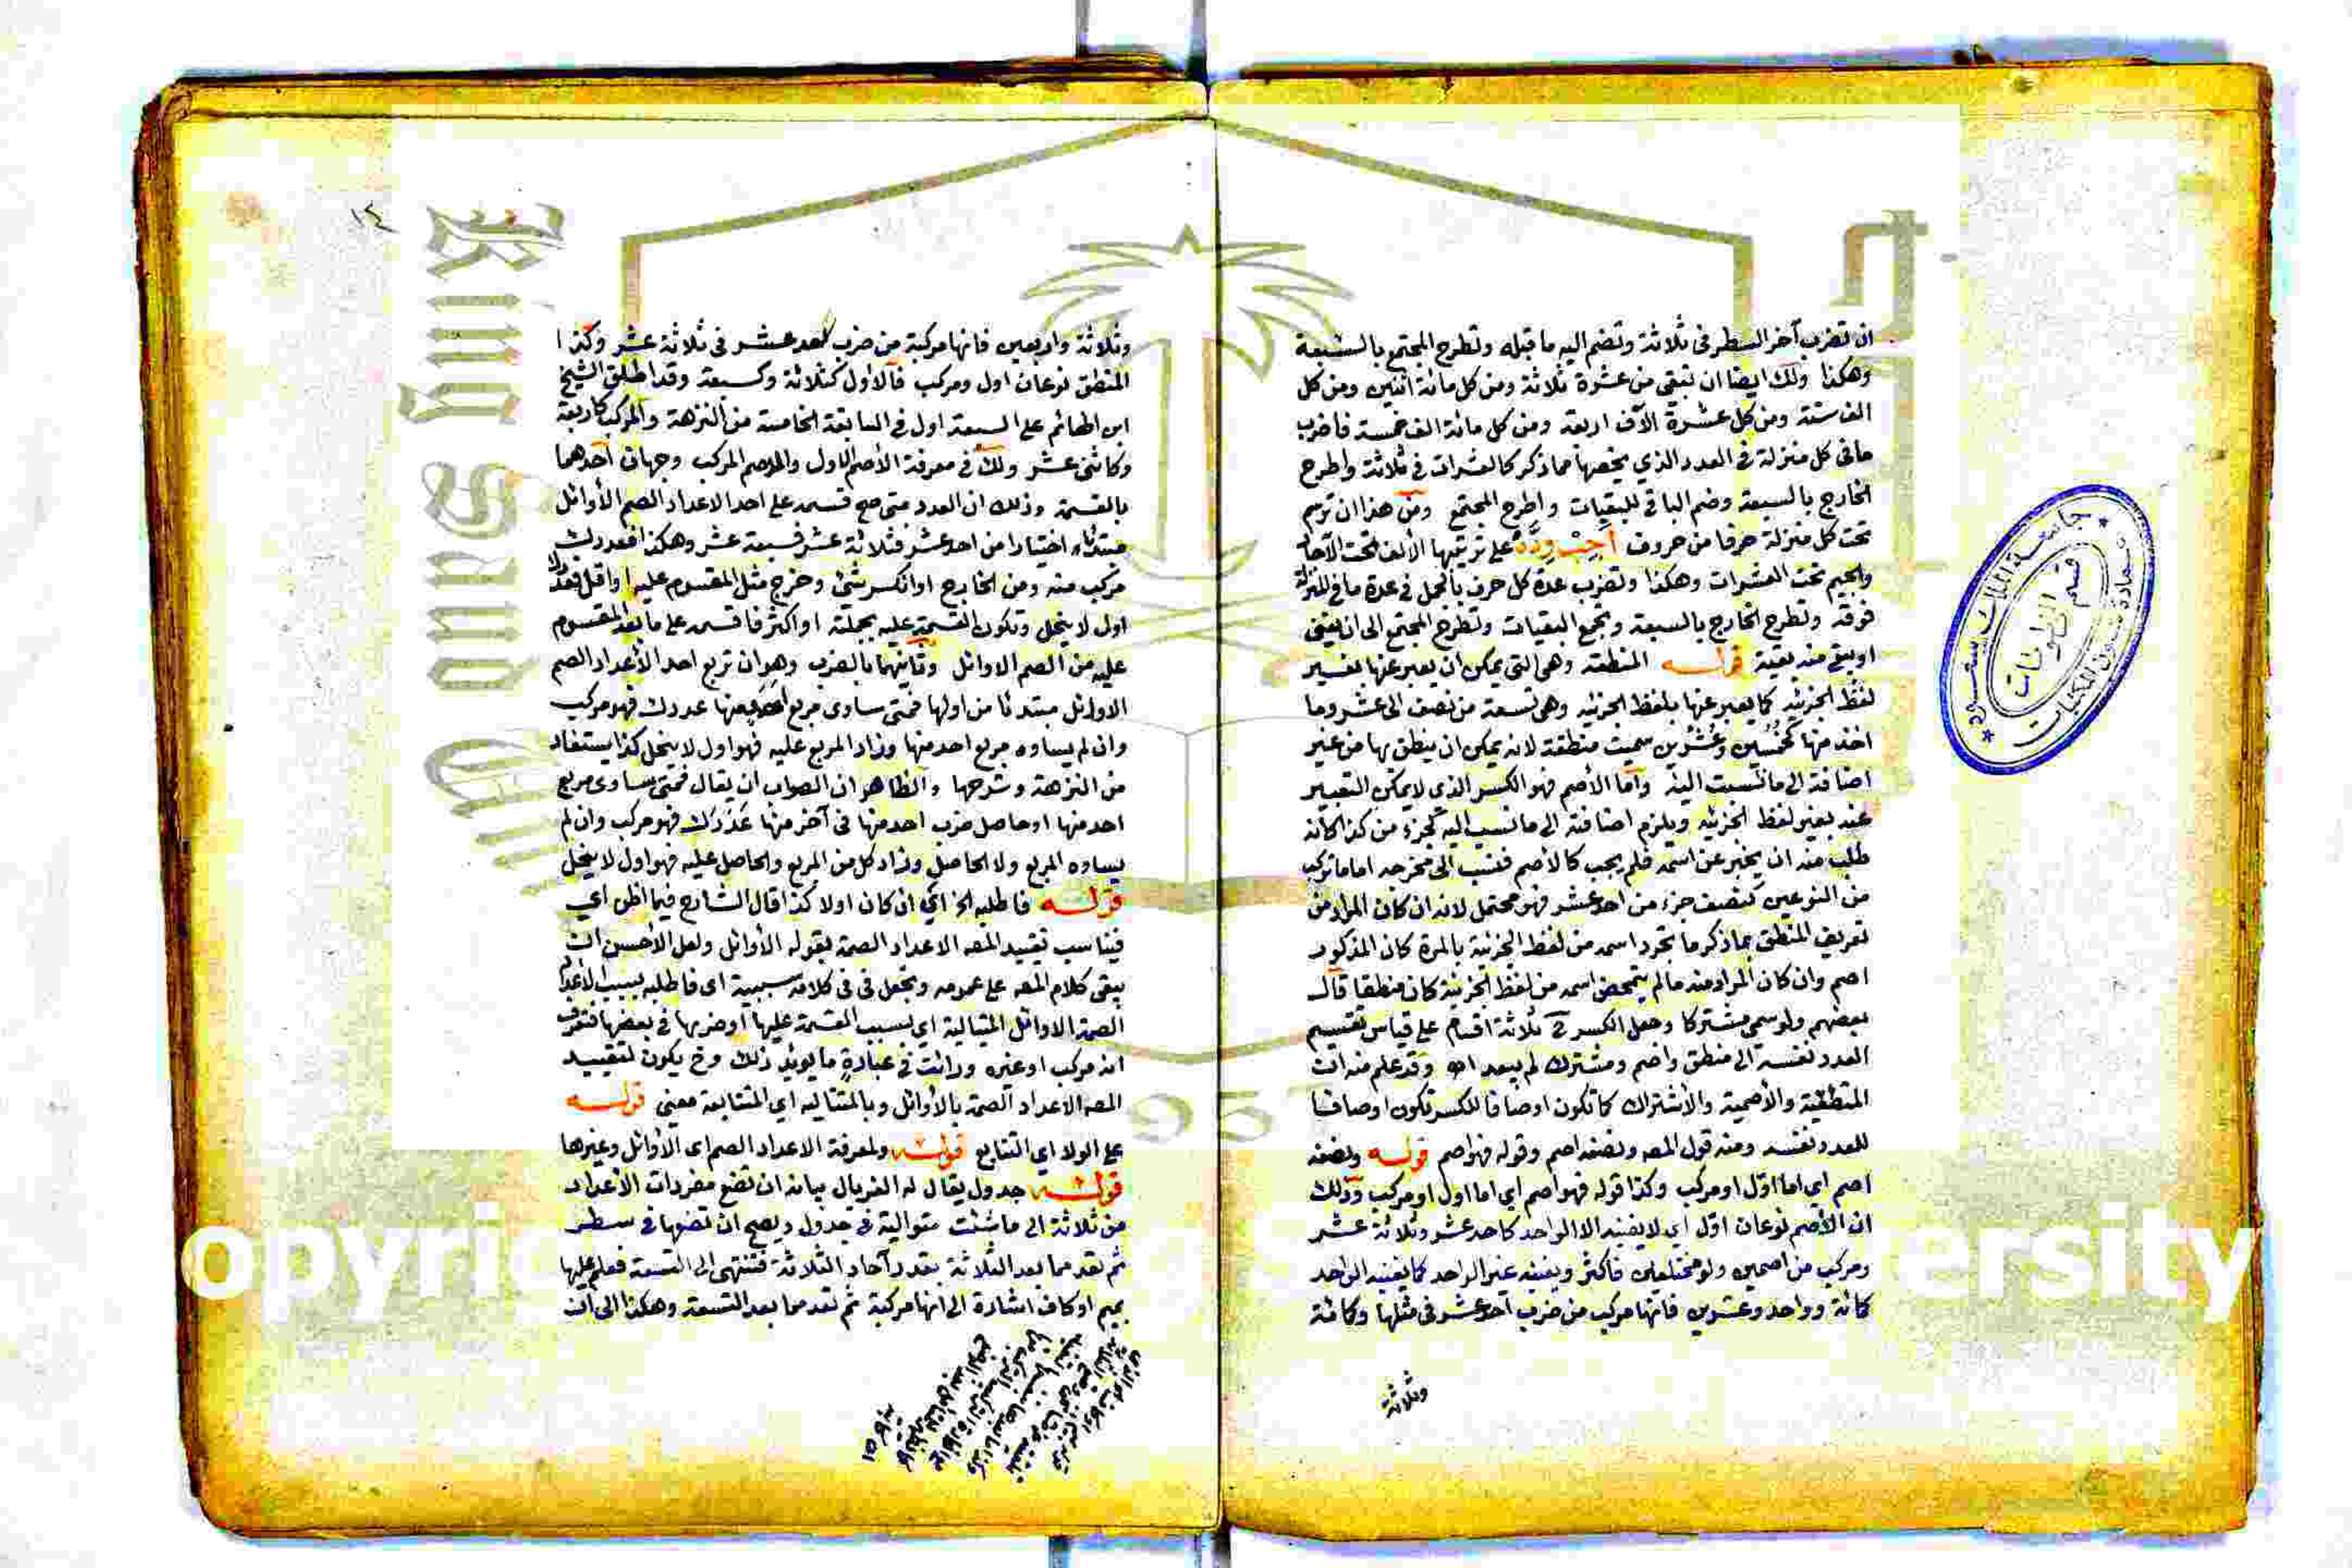 ان تضرب آخر السطر فى ثلاثة وتضم اليه ما قبله وتطرح المجتمع بالسبعة
وهكذا ولك ايضا ان تبقى من عشرة ثلاثة ومن كل مائة اثنين ومن كل
الف ستة ومن كل عشرة الآف اربعة ومن كل مائة الف خمسة فاضرب
ما فى كل منزلة فى العدد الذي يخصها مما ذكر كالعشرات فى ثلاثة واطرح
الخارج بالسبعة وضم الباقى للبقيات واطرح المجتمع ومن هذا ان ترسم
تحت كل منزلة حرفا من حروف على ترتيبها الألف تحت الآحاد
والجيم تحت العشرات وهكذا وتضرب عدة كل حرف بالجمل فى عدة ما فى المنزلة
فوقه وتطرح الخارج بالسبعة وتجمع البقيات وتطرح المجتمع الى ان يفنى
او يبقى منه بقية قوله المنطقة وهى التى يمكن ان يعبر عنها بغير
لفظ الجزئيه كما يعبر عنها بلفظ الجزئيه وهى تسعة من نصف الى عشر وما
اخذ منها كخمسين وعشرين سميت منطقة لانه يمكن ان ينطق بها من غير
اضافة الى ما نسبت اليه وأما الأصم فهو الكسر الذى لا يمكن التعبير
عنه بغير لفظ الجزئيه ويلزم اضافته الى ما نسب اليه كجزء من كذا كأنه
طلب منه ان يخبر عن اسمه فلم يجب كالأصم فنسب الى مخرجه اما ما تركب
من النوعين كنصف جزء من احد عشر فهو محتمل لانه ان كان المراد من
تعريف المنطق بما ذكر ما تجرد اسمه من لفظ الجزئية بالمرة كان المذكور
اصم وان كان المراد منه ما لم يتمحض اسمه من لفظ الجزئية كان منطقا قال
بعضهم ولو سمى مشتركا وجعل الكسر ح ثلاثة اقسام على قياس تقسيم
العدد نفسه الى منطق واصم ومشترك لم يبعد اه وقد علم منه ان
المنطقية والأصمية والأشتراك كما تكون اوصافا للكسر تكون اوصافا
للعدد نفسه ومنه قول المصه ونصفه اصم وقوله فهو اصم قوله ونصفه
اصم اى اما اوّل او مركب وكذا قوله فهو اصم اي اما اول او مركب وذلك
ان الأصم نوعان اوّل اي لا يفنيه الا الواحد كاحد عشر وثلاثة عشر
ومركب من اصمين ولو مختلفين فأكثر ويفنيه غير الواحد كما يفنيه الواحد
كمائة وواحد وعشرين فانها مركب من ضرب أحد عشر فى مثلها وكمائة
وثلاثة
١٤
وثلاثة واربعين فانها مركبة من ضرب احد عشر فى ثلاثة عشر وكذا
المنطق نوعان اول ومركب فالاول كثلاثة وكسبعة وقد اطلق الشيخ
ابن الهائم على السبعة اول فى السابقة الخامسة من النزهة والمركب كاربعة
وكاثنى عشر ولك فى معرفة الأصم الاول والاصم المركب وجهان أحدهما
بالقسمة وذلك ان العدد متى صح قسمه على احد الاعداد الصم الأوائل
مبتدئا اختيارا من احد عشر فثلاثة عشر فسبعة عشر وهكذا فعددك
مركب منه ومن الخارج او انكسر شئ وخرج مثل المقسوم عليه او اقل فعددك
اول لا ينحل وتكون القسمة عليه بجملته او اكثر فاقسمه على ما بعد المقسوم
عليه من الصم الاوائل وثانيهما بالضرب وهو ان تربع احد الأعداد الصم
الاوائل مبتدئا من اولها فمتى ساوى مربع منها عددك فهو مركب
وان لم يساوه مربع احد منها وزاد المربع عليه فهو اول لا ينحل كذا يستفاد
من النزهة وشرحها والظاهر ان الصواب ان يقال فمتى ساوى مربع
احد منها او حاصل ضرب احد منها فى آخر منها عددك فهو مركب وان لم
يساوه المربع ولا الحاصل وزاد كل من المربع والحاصل عليه فهو اول لا ينحل
قوله فاطلبه الخ اى ان كان اولا كذا قال الشارح فيما اظن اى
فيناسب تقييد المصه الاعداد الصمة بقوله الأوائل ولعل الأحسن ان
يبقى كلام المصه على عمومه وتجعل فى فى كلامه سببية اى فاطلبه بسبب الاعداد
الصمة الاوائل المتتالية اي بسبب القسمة عليها أو ضربها فى بعضها فتعرف
انه مركب او غيره ورأيت فى عبارة ما يؤيد ذلك وح يكون لتقييد
المصه الاعداد الصمة بالأوائل وبالمتتاليه اي المتتابعة معنى قوله
على الولا اى التتابع قوله ولمعرفة الاعداد الصم اى الأوائل وغيرها
قوله جدول يقال له الغربال بيانه ان تضع مفردات الأعداد
من ثلاثة الى ما شئت متوالية فى جدول ويصح ان تضعها فى سطر
ثم تعد مما بعد الثلاثة بقدر آحاد الثلاثة فتنتهى الى التسعة فعلم عليها
بميم او كاف اشارة الى انها مركبة ثم تعد مما بعد التسعة وهكذا الى ان